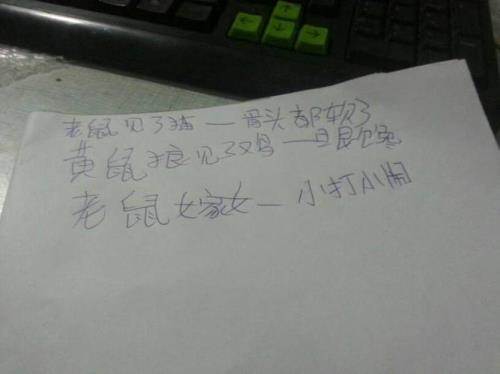 老鼠见了猫—骨头都软了
黄鼠狼见了鸡—眼馋
老鼠嫁女—小打小闹